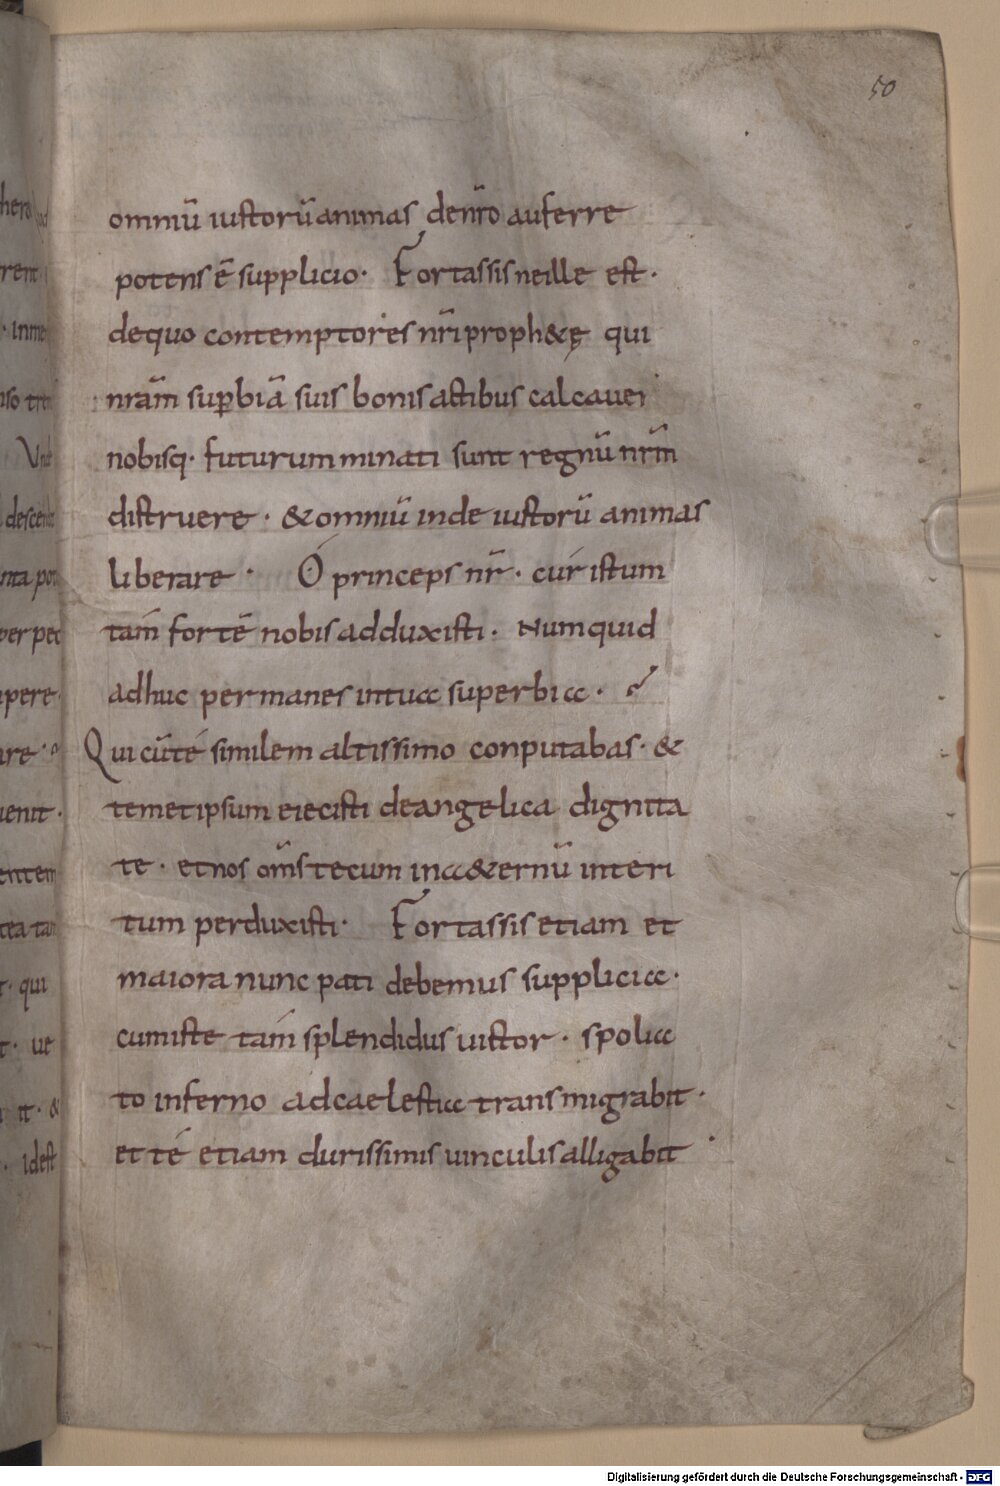 50
omniū iustorū animas denr̄o auferre
potens ē supplicio · Fortassis neille est ·
dequo contemptores nr̄i proph&ę qui
nrām sup̱biā suis bonis actibus calcauer
nobisq· futurum minati sunt regnū nrm̄
distruere · &omniū inde iustorū animas
liberare · O princeps nr̄ · cur istum
tam fortē nobis adduxisti · Numquid
adhuc permanes intua superbia ·
Qui cū té similem altissimo conputabas · &
temetipsum eiecisti deangelica dignita
te · et nos om̄s tecum ina&ernū interi
tum perduxisti · Fortassis etiam et
maiora nunc pati debemus supplicia ·
cum iste tam splendidus uictor · spolia
to inferno adcaelestia transmigrabit ·
et té etiam durissimis uinculis alligabit
Digitalisierung gefördert durch die Deutsche Forschungsgemeinschaft - DFG